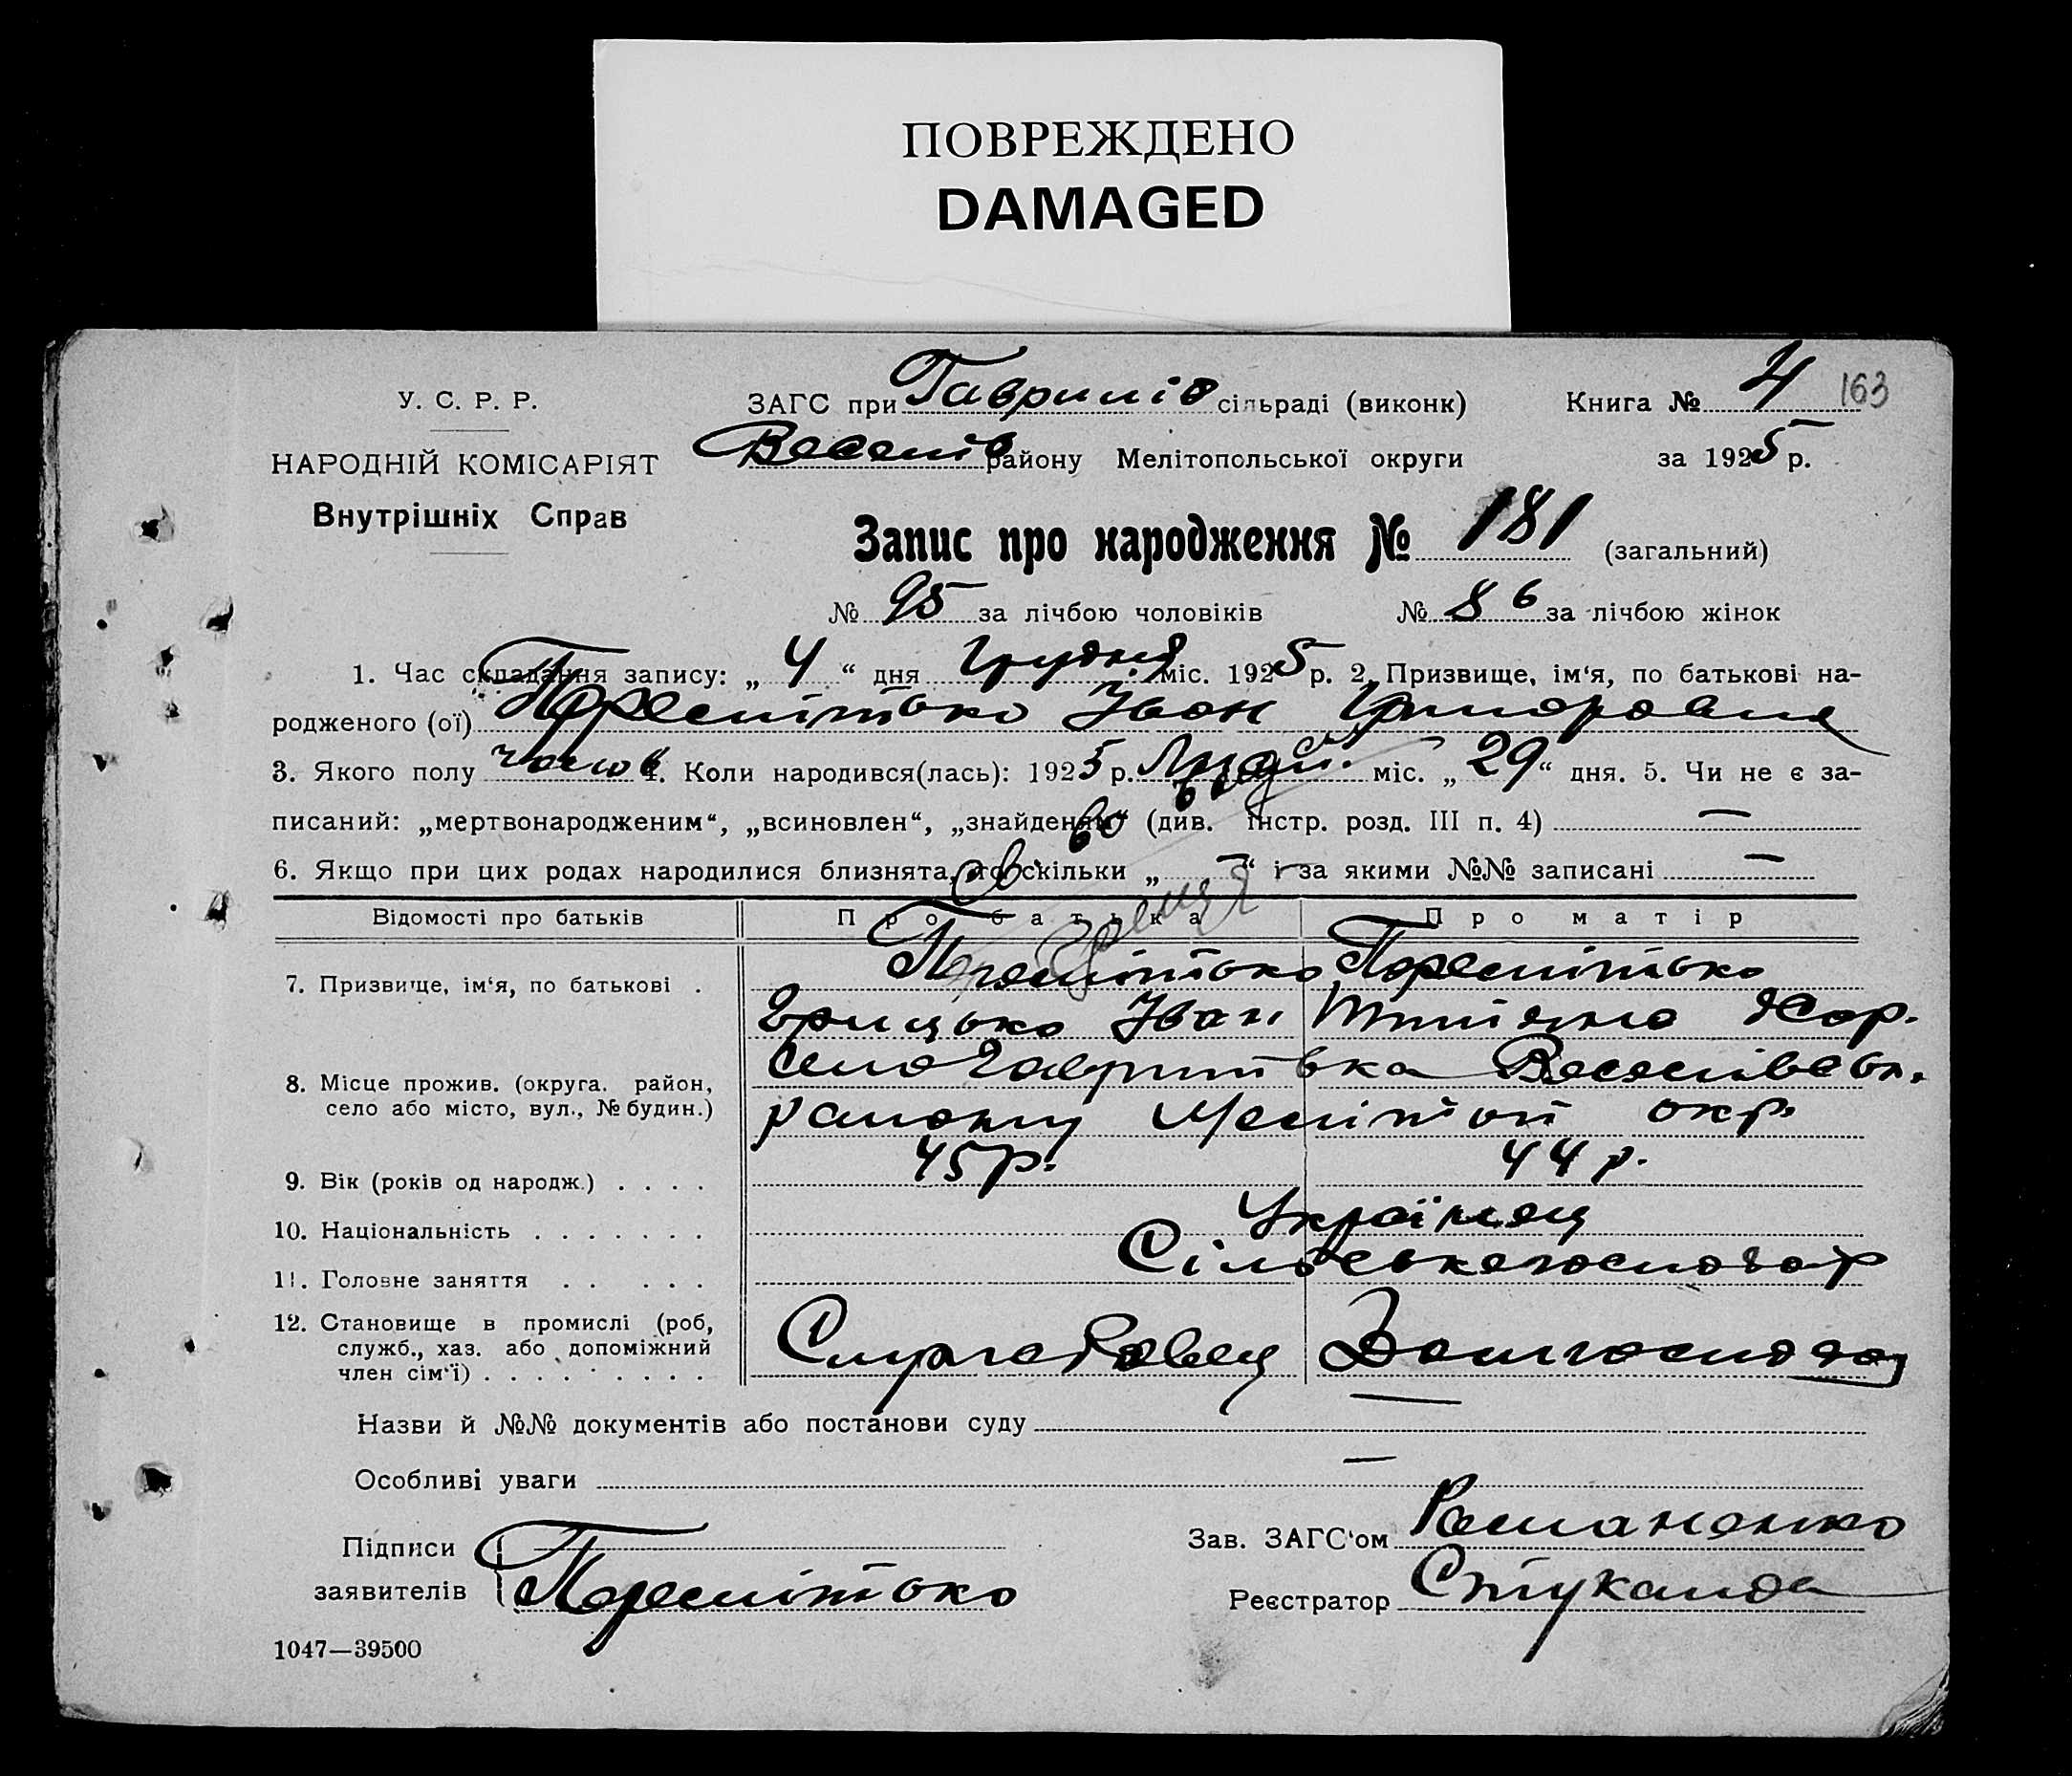 ПОВРЕЖДЕНО
DAMAGED
У. С. Р. Р.
НАРОДНІЙ КОМІСАРІЯТ
Внутрішніх Справ
ЗАГС при Гаврилів сільраді (виконк)
Книга № 4 163
Веселів району Мелітопольської округи
за 1925 р.
Запис про народження № 181 (загальний)
№ 95 за лічбою чоловіків № 86 за лічбою жінок
1. Час складання запису: „ 4 “ дня Грудня міс. 1925 р. 2. Призвище, ім‘я, по батькові на-
родженого (ої) Іван
3. Якого полу чолов 4. Коли народився(лась): 1925 р. міс. „ 29 “ дня. 5. Чи не є за-
писаний: „мертвонародженим“, „всиновлен“, „знайденим“ (див. інстр. розд. III п. 4) —
6. Якщо при цих родах народилися близнята, то скільки „ — “ і за якими №№ записані —
Відомості про батьків Про батька Про матір
7. Призвище, ім‘я, по батькові .
Грицько Іван
8. Місце прожив. (округа, район,
село або місто, вул., № будин.)
село Гаврилівка Веселівськ.
району Мелітоп окр.
9. Вік (років од народж.) . . . . 45 р. 44 р.
10. Національність . . . . . . . Українец
11. Головне заняття . . . . . Сільськегосподар
12. Становище в промислі (роб,
служб., хаз. або допоміжний
член сім‘ї) . . . . . . . . .
Назви й №№ документів або постанови суду —
Особливі уваги —
Підписи
заявителів
Зав. ЗАГС‘ом Романенко
Реєстратор
1047—39500